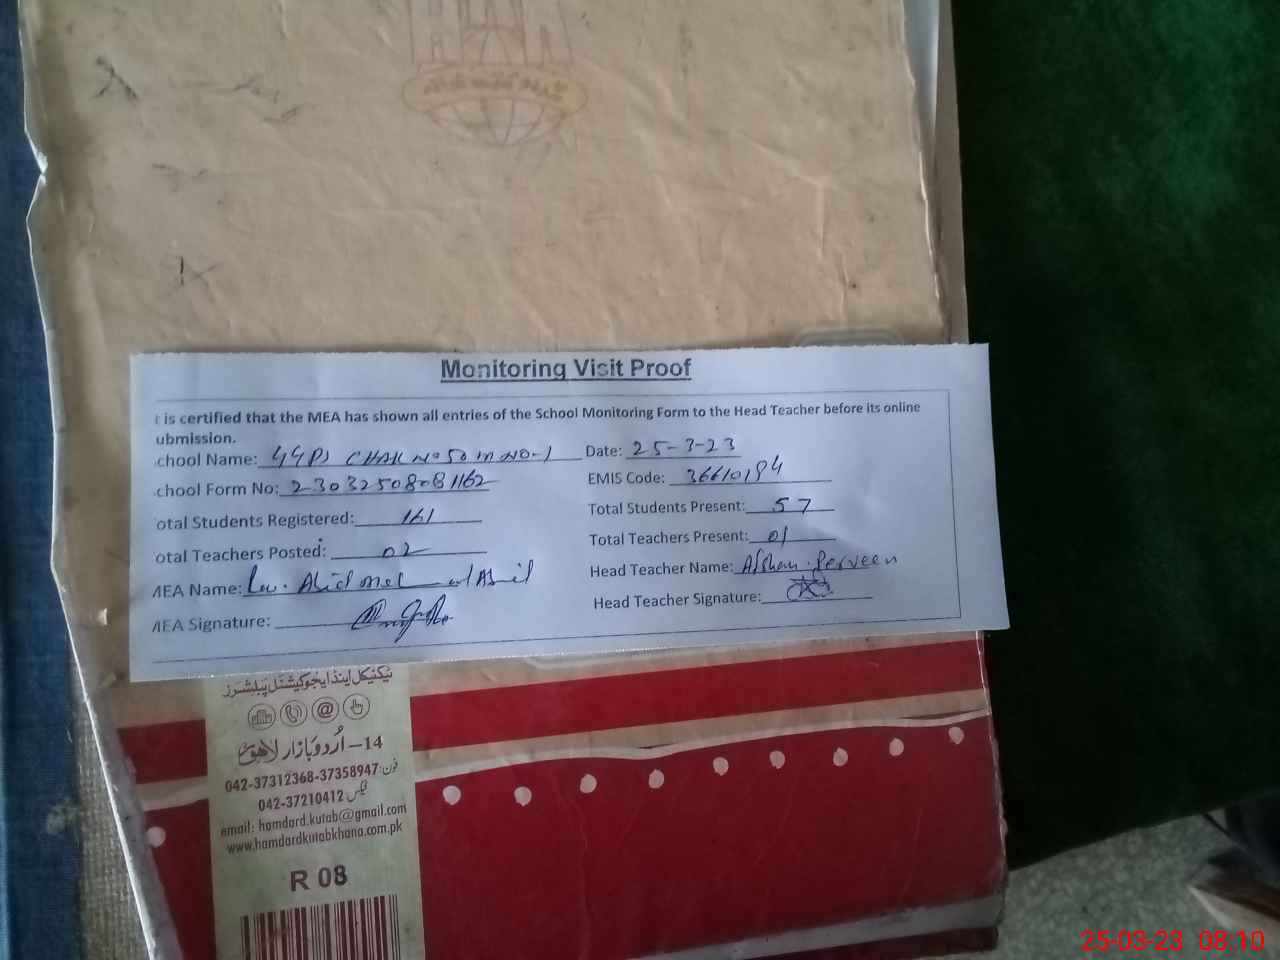 Monitoring Visit Proof
t is certified that the MEA has shown all entries of the School Monitoring Form to the Head Teacher before its online
ubmission.
chool Name: GGPS CHAK No 50 M NO-1 Date: 25-3-23
chool Form No: 23032508081162 EMIS Code: 36610194
otal Students Registered: 161 Total Students Present: 57
otal Teachers Posted: 02 Total Teachers Present: 01
MEA Name: Abid Head Teacher Name: Afshan Perveen
MEA Signature: Head Teacher Signature:
ٹیکنیکل اینڈ ایجوکیشنل پبلشرز
14-اُردو بازار لاہور
فون: 042-37312368-37358947
فیکس 042-37210412
email: hamdard.kutab@gmail.com
www.hamdardkutabkhana.com.pk
R 08
25-03-23 08:10